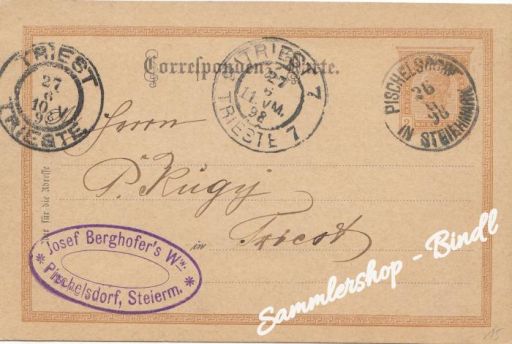 Correspondenz-Karte.
TRIEST
27
10 V
98
TRIESTE
TRIEST 7
27
5
11.VM.
98
TRIESTE 7
PISCHELSDORF
26
98
IN STEIERMARK
Herrn
P. Rugy
in Triest
Nur für die Adresse
* Josef Berghofer's Ww. *
Pischelsdorf, Steierm.
Sammlershop - Bindl
15